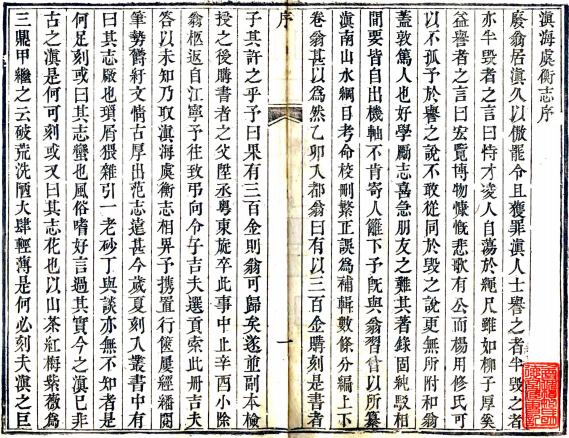 滇海虞衡志序
廢翁居滇久以傲罷令且獲罪滇人士譽之者半毀之者
亦半毀之者之言曰恃才凌人自蕩於繩尺雖如柳子厚奚
益譽者之言曰宏覽博物慷慨悲歌有公而楊用修氏可
以不孤予於譽之說不敢從同於毀之說更無所附和翁
蓋敦篤人也好學勵志喜急朋友之難其著錄固純駁相
間要皆自出機軸不肯寄人籬下予旣與翁習嘗以所纂
滇南山水綱目考命校刪繁正誤為補輯數條分編上下
卷翁甚以為然乙卯入都翁曰有以三百金購刻是書者
序
一
子其許之乎予曰果有三百金則翁可歸矣遂並副本檢
授之後購書者之父陞丞粤東旋卒此事中止辛酉小除
翁柩返自江寧予往致弔向令子吉夫選貢索此冊吉夫
答以未知乃取滇海虞衡志相畀予攜置行篋屢經繙閱
筆勢欝紆文情古厚出范志遠甚今歲夏刻入叢書中有
曰其志厰也瑣屑猥雜引一老砂丁與談亦無不知者是
何足刻或曰其志蠻也風俗嗜好言過其實今之滇已非
古之滇是何可刻或又曰其志花也以山茶紅梅紫薇為
三鼎甲繼之云破荒洗陋大肆輕薄是何必刻夫滇之巨